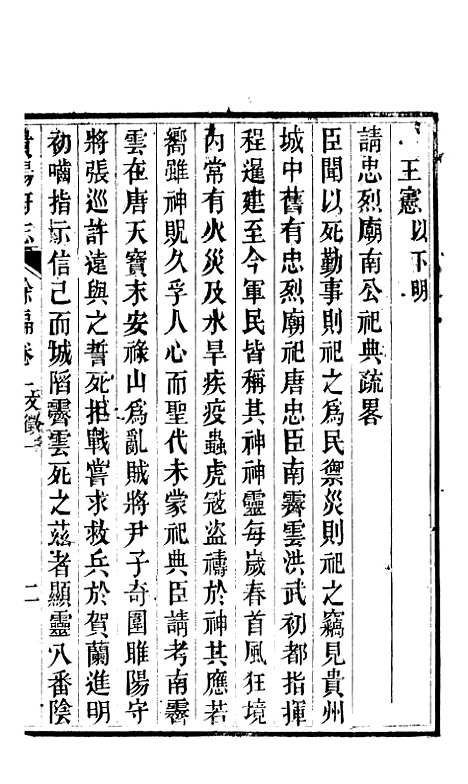 王憲以下明
請忠烈廟南公祀典疏畧
臣聞以死勤事則祀之為民禦災則祀之竊見貴州
城中舊有忠烈廟祀唐忠臣南霽雲洪武初都指揮
程暹建至今軍民皆稱其神神靈每歲春首風狂境
內常有火災及水旱疾疫蟲虎寇盜禱於神其應若
嚮雖神貺久孚人心而聖代未蒙祀典臣請考南霽
雲在唐天寶末安祿山為亂賊將尹子奇圍睢陽守
將張巡許遠與之誓死拒戰嘗求救兵於賀蘭進明
初嚙指示信己而城陷霽雲死之茲者顯靈八番陰
貴陽府志 餘編卷一文徵一 二